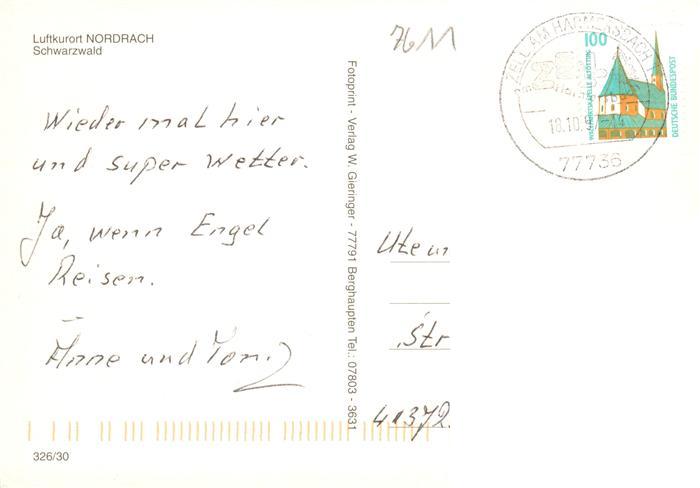 Luftkurort NORDRACH
Schwarzwald
7611
Wieder mal hier
und super Wetter.
Ja, wenn Engel
Reisen.
Anne und Toni
326/30
Fotoprint - Verlag W. Gieringer - 77791 Berghaupten Tel.: 07803 - 3631
Ute u
Str
41372
ZELL AM HARMERSBACH 1
18.10.
77736
100
WALLFAHRTSKAPELLE ALTÖTTING
DEUTSCHE BUNDESPOST